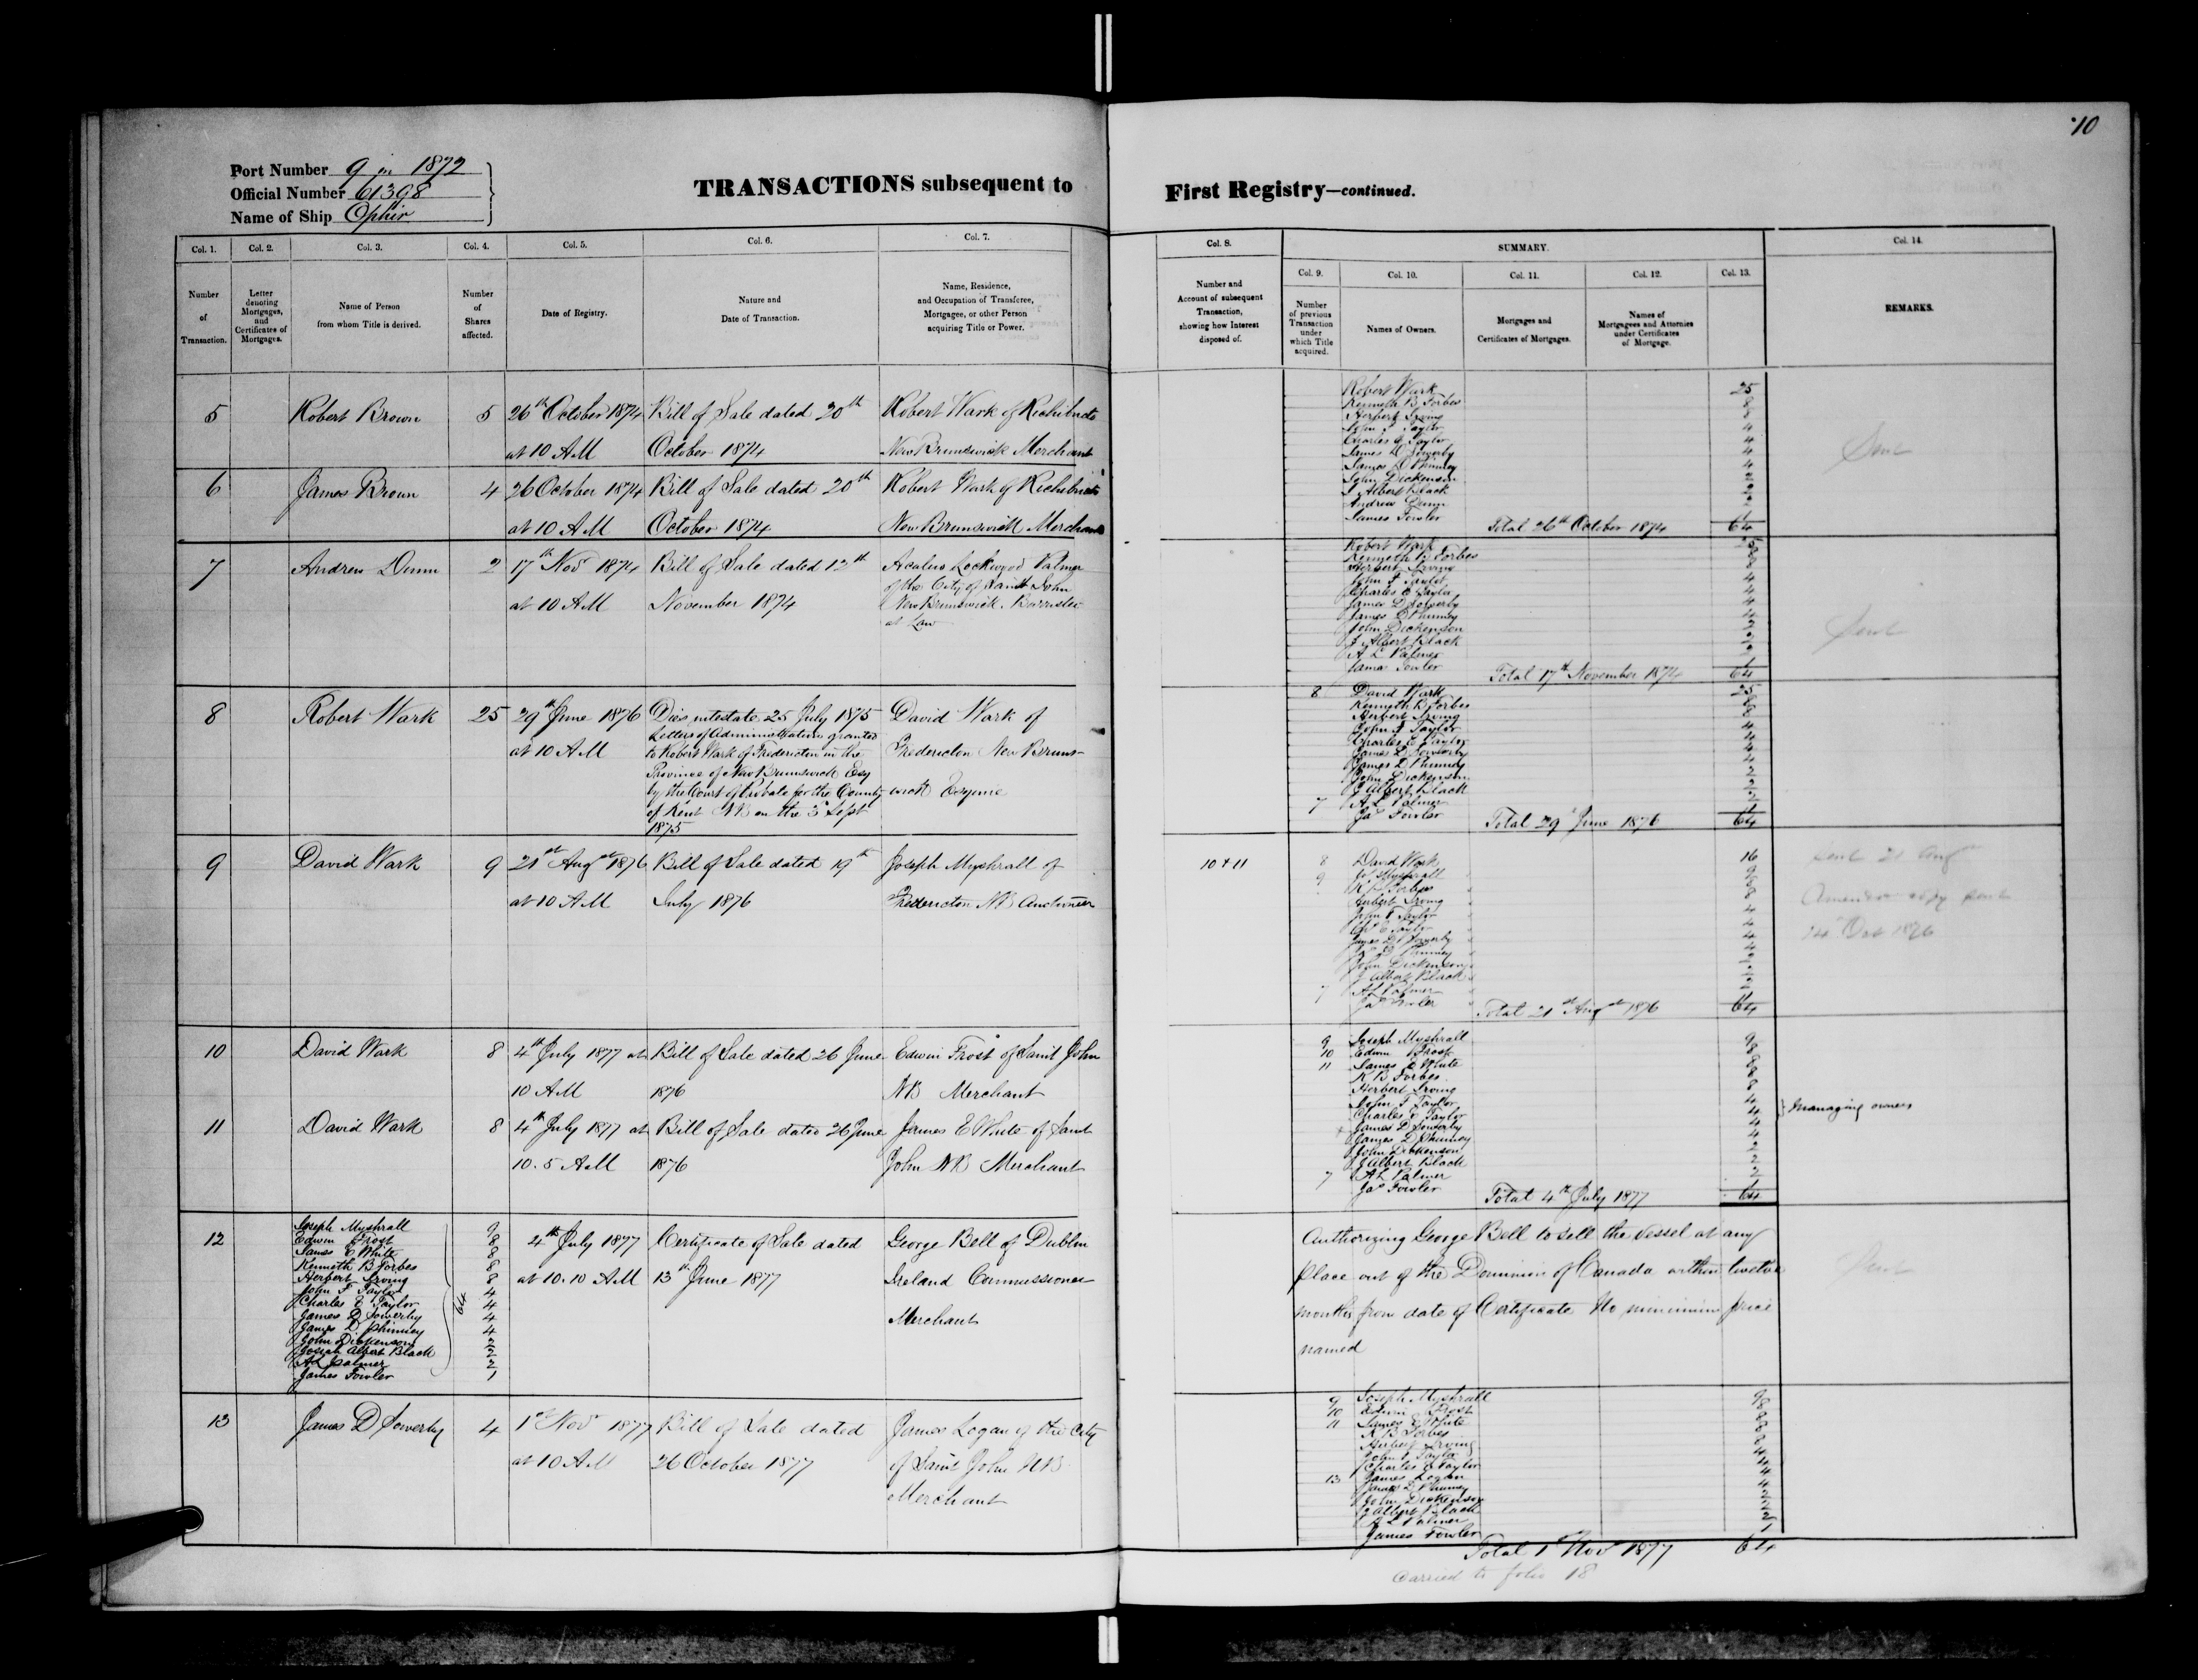 10
Port Number 9 in 1872
Official Number 61398
Name of Ship Ophir
TRANSACTIONS subsequent to First Registry—continued.
Col. 1.
Number
of
Transaction.
Col. 2.
Letter
denoting
Mortgages,
and
Certificates of
Mortgages.
Col. 3.
Name of Person
from whom Title is derived.
Col. 4.
Number
of
Shares
affected.
Col. 5.
Date of Registry.
Col. 6.
Nature and
Date of Transaction.
Col. 7.
Name, Residence,
and Occupation of Transferee,
Mortgagee, or other Person
acquiring Title or Power.
Col. 8.
Number and
Account of subsequent
Transaction,
showing how Interest
disposed of.
SUMMARY.
Col. 9.
Number
of previous
Transaction
under
which Title
acquired.
Col. 10.
Names of Owners.
Col. 11.
Mortgages and
Certificates of Mortgages.
Col. 12.
Names of
Mortgagees and Attornies
under Certificates
of Mortgage.
Col. 13.
Col. 14.
REMARKS.
5
Robert Brown
5
26th October 1874
at 10 AM
Bill of Sale dated 20th
October 1874
Robert Wark of Richibucto
New Brunswick Merchant
6
James Brown
4
26 October 1874
at 10 AM
Bill of Sale dated 20th
October 1874
Robert Wark of Richibucto
New Brunswick Merchant
Robert Wark 25
Kenneth B Forbes 8
Herbert Irving 8
John F Taylor 4
Charles E Taylor 4
James D Sowerby 4
James D Phinney 4
John Dickenson 2
J Albert Black 2
Andrew Dunn 2
James Fowler 1
Total 26th October 1874 64
Sent
7
Andrew Dunn
2
17th Novr 1874
at 10 AM
Bill of Sale dated 12th
November 1874
Acalus Lockwood Palmer
of the City of Saint John
New Brunswick Barrister
at Law
Robert Wark 25
Kenneth B Forbes 8
Herbert Irving 8
John F Taylor 4
Charles E Taylor 4
James D Sowerby 4
James D Phinney 4
John Dickenson 2
J Albert Black 2
A L Palmer 2
James Fowler 1
Total 17th November 1874 64
Sent
8
Robert Wark
25
29th June 1876
at 10 AM
Dies intestate 25 July 1875
Letters of Administration granted
to Robert Wark of Fredericton in the
Province of New Brunswick Esq
by the Court of Probate for the County
of Kent NB on the 3d Sept
1875
David Wark of
Fredericton New Bruns-
wick Esquire
8 David Wark 25
Kenneth B Forbes 8
Herbert Irving 8
John F Taylor 4
Charles E Taylor 4
James D Sowerby 4
James D Phinney 4
John Dickenson 2
J Albert Black 2
7 A L Palmer 2
Jas Fowler 1
Total 29 June 1876 64
9
David Wark
9
21st Augst 1876
at 10 AM
Bill of Sale dated 19th
July 1876
Joseph Myshrall of
Fredericton NB Auctioneer
10 + 11
8 David Wark 16
9 J Myshrall 9
K B Forbes 8
Herbert Irving 8
John F Taylor 4
Chs E Taylor 4
James D Sowerby 4
Jas D Phinney 4
John Dickenson 2
J Albert Black 2
7 A L Palmer 2
Jas Fowler 1
Total 21st Augst 1876 64
Sent 21 Aug
Amended copy sent
14 Oct 1876
10
David Wark
8
4th July 1877 at
10 AM
Bill of Sale dated 26 June
1876
Edwin Frost of Saint John
NB Merchant
11
David Wark
8
4th July 1877 at
10.5 AM
Bill of Sale dated 26 June
1876
James E White of Saint
John NB Merchant
9 Joseph Myshrall 9
10 Edwin Frost 8
11 James E White 8
K B Forbes 8
Herbert Irving 8
John F Taylor 4
Charles E Taylor 4
James D Sowerby 4
James D Phinney 4
John Dickenson 2
J Albert Black 2
7 A L Palmer 2
Jas Fowler 1
Total 4th July 1877 64
Managing owners
12
Joseph Myshrall 9
Edwin Frost 8
James E White 8
Kenneth B Forbes 8
Herbert Irving 8
John F Taylor 4
Charles E Taylor 4
James D Sowerby 4
James D Phinney 4
John Dickenson 2
Josiah Albert Black 2
A L Palmer 2
James Fowler 1
64
4th July 1877
at 10.10 AM
Certificate of Sale dated
13th June 1877
George Bell of Dublin
Ireland Commissioner
Merchant
Authorizing George Bell to sell the Vessel at any
place out of the Dominion of Canada within twelve
months from date of Certificate No minimum price
named
Sent
13
James D Sowerby
4
1st Novr 1877
at 10 AM
Bill of Sale dated
26 October 1877
James Logan of the City
of Saint John NB
Merchant
9 Joseph Myshrall 9
10 Edwin Frost 8
11 James E White 8
K B Forbes 8
Herbert Irving 8
John F Taylor 4
Charles E Taylor 4
13 James Logan 4
James D Phinney 4
John Dickenson 2
J Albert Black 2
A L Palmer 2
James Fowler 1
Total 1st Novr 1877 64
Carried to folio 18